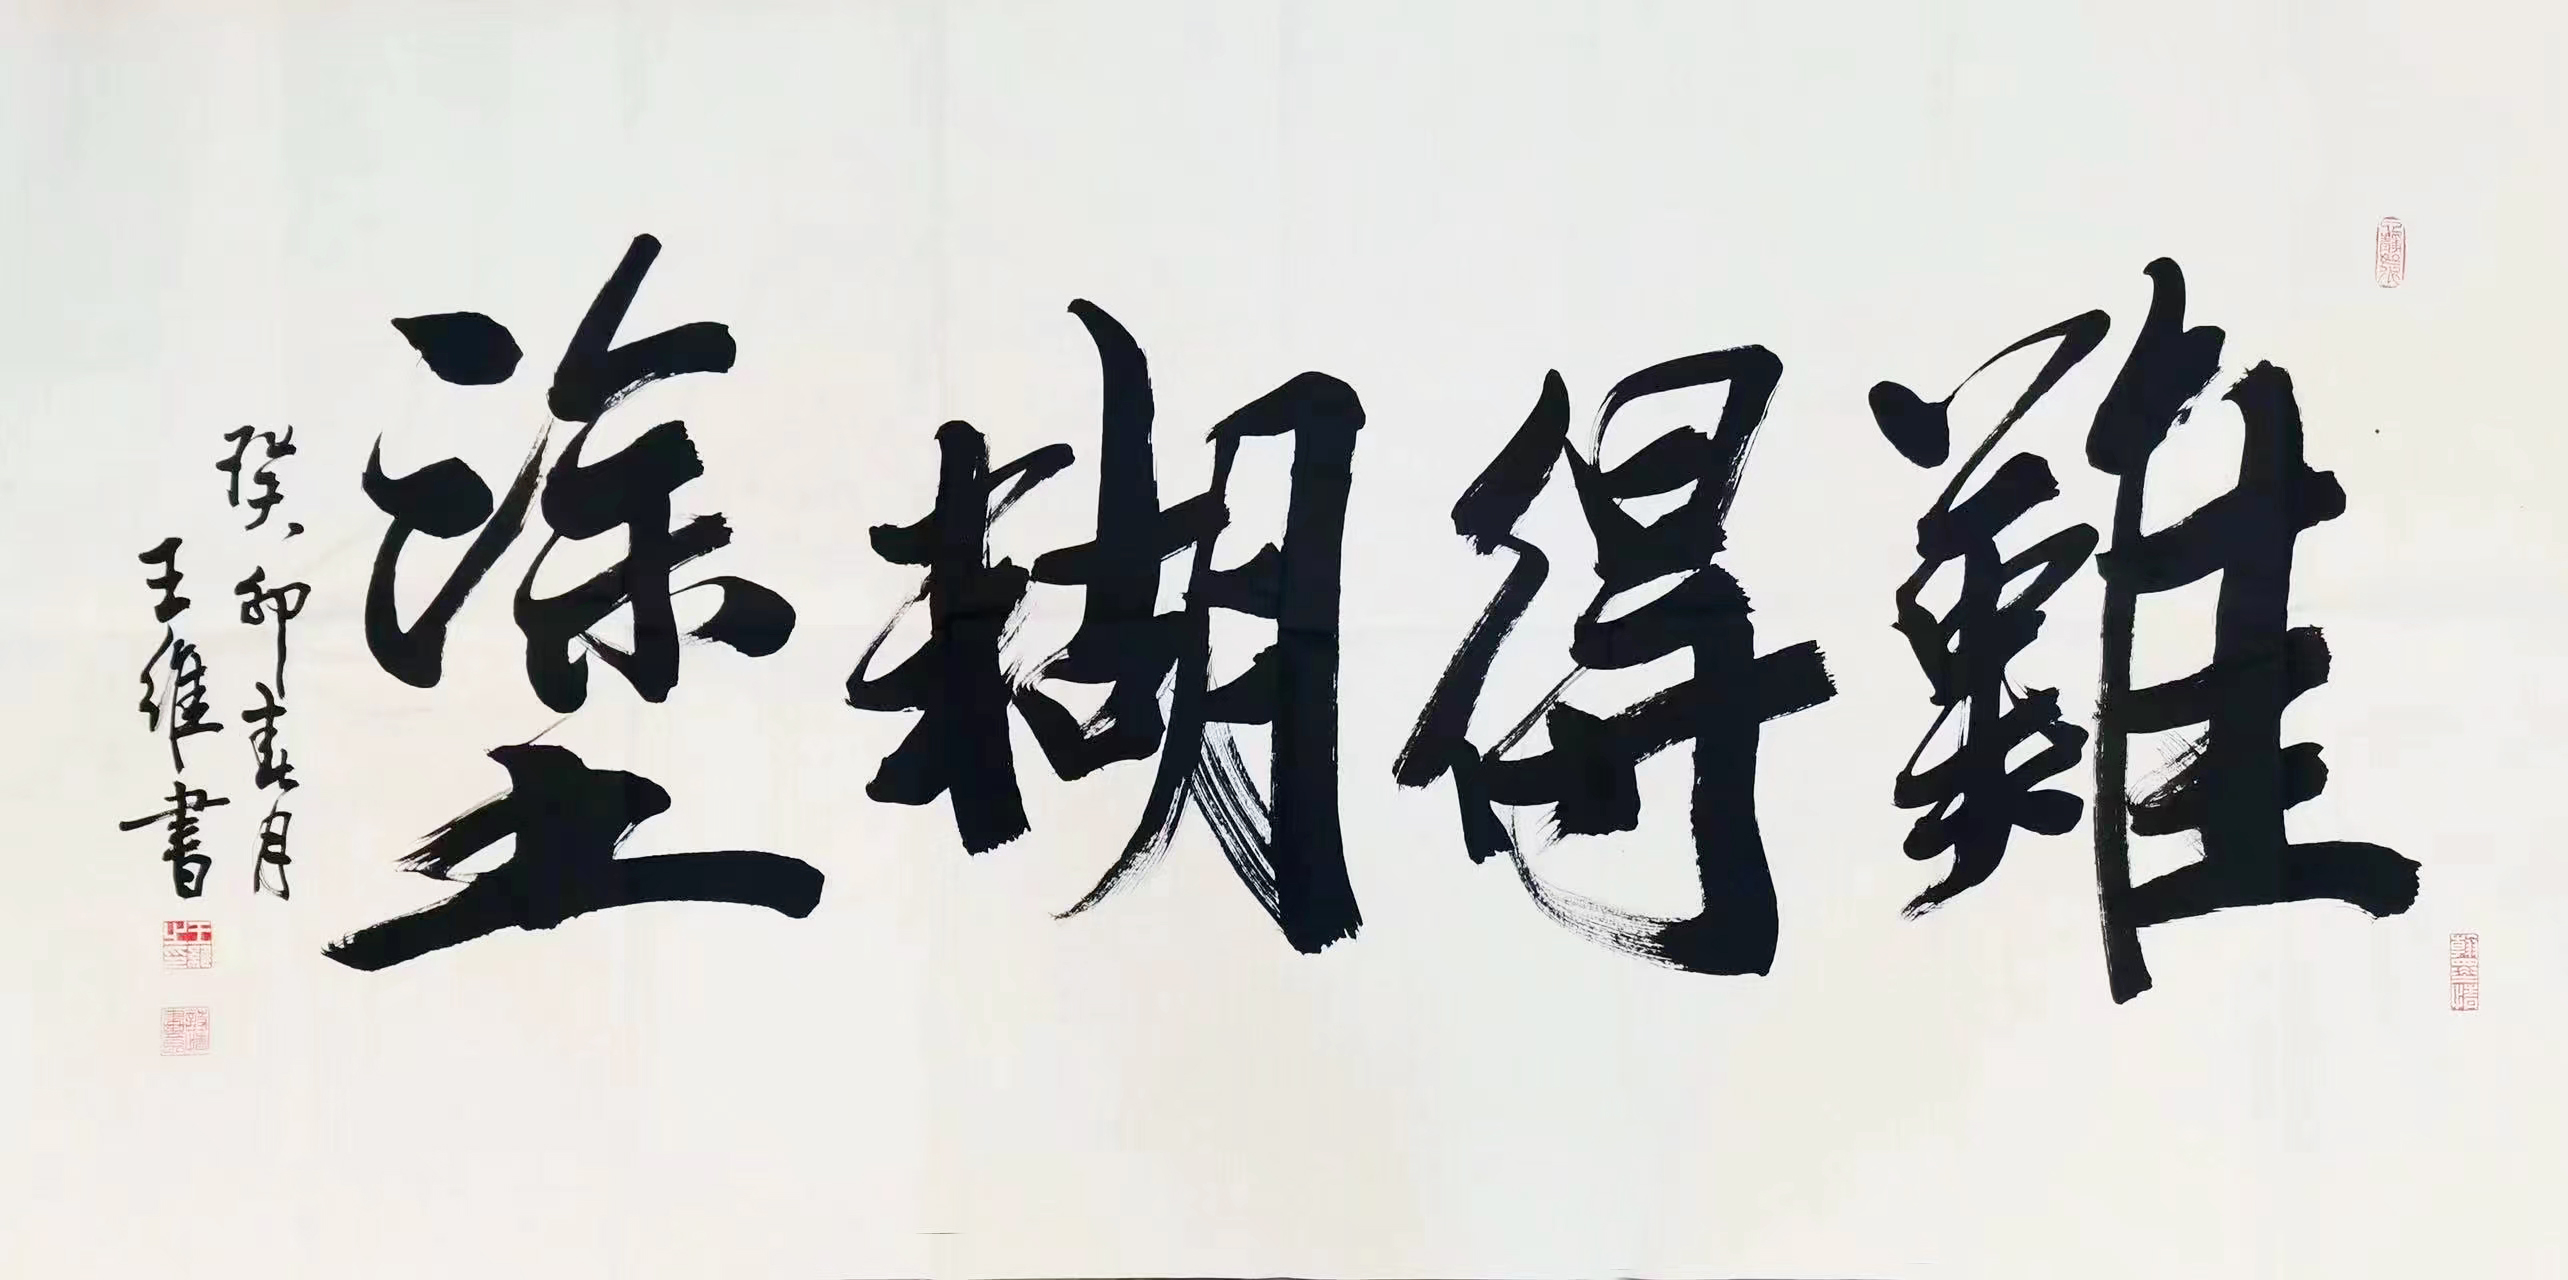 難得糊塗
癸卯春月
王維書